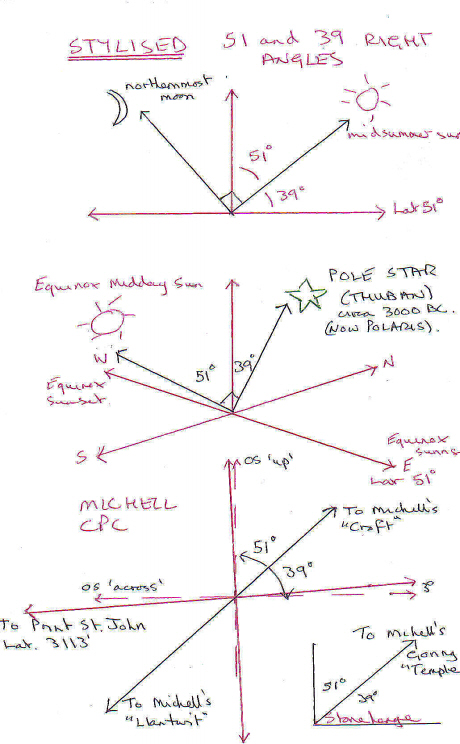 STYLISED 51 and 39 RIGHT
ANGLES
northernmost
moon
midsummer sun
51°
39°
Lat 51°
Equinox Midday Sun
POLE STAR
(THUBAN)
circa 3000 BC.
(NOW POLARIS).
W
51°
39°
N
Equinox
Sunset
S
Equinox
E
Lat 51°
OS 'up'
MICHELL
CPC
To Michell's
"Croft"
51°
39°
OS 'across'
To Point St. John
Lat. 3113'
To Michell's
"Llantwit"
To Michell's
Goring
"Temple
51°
39°
Stonehenge